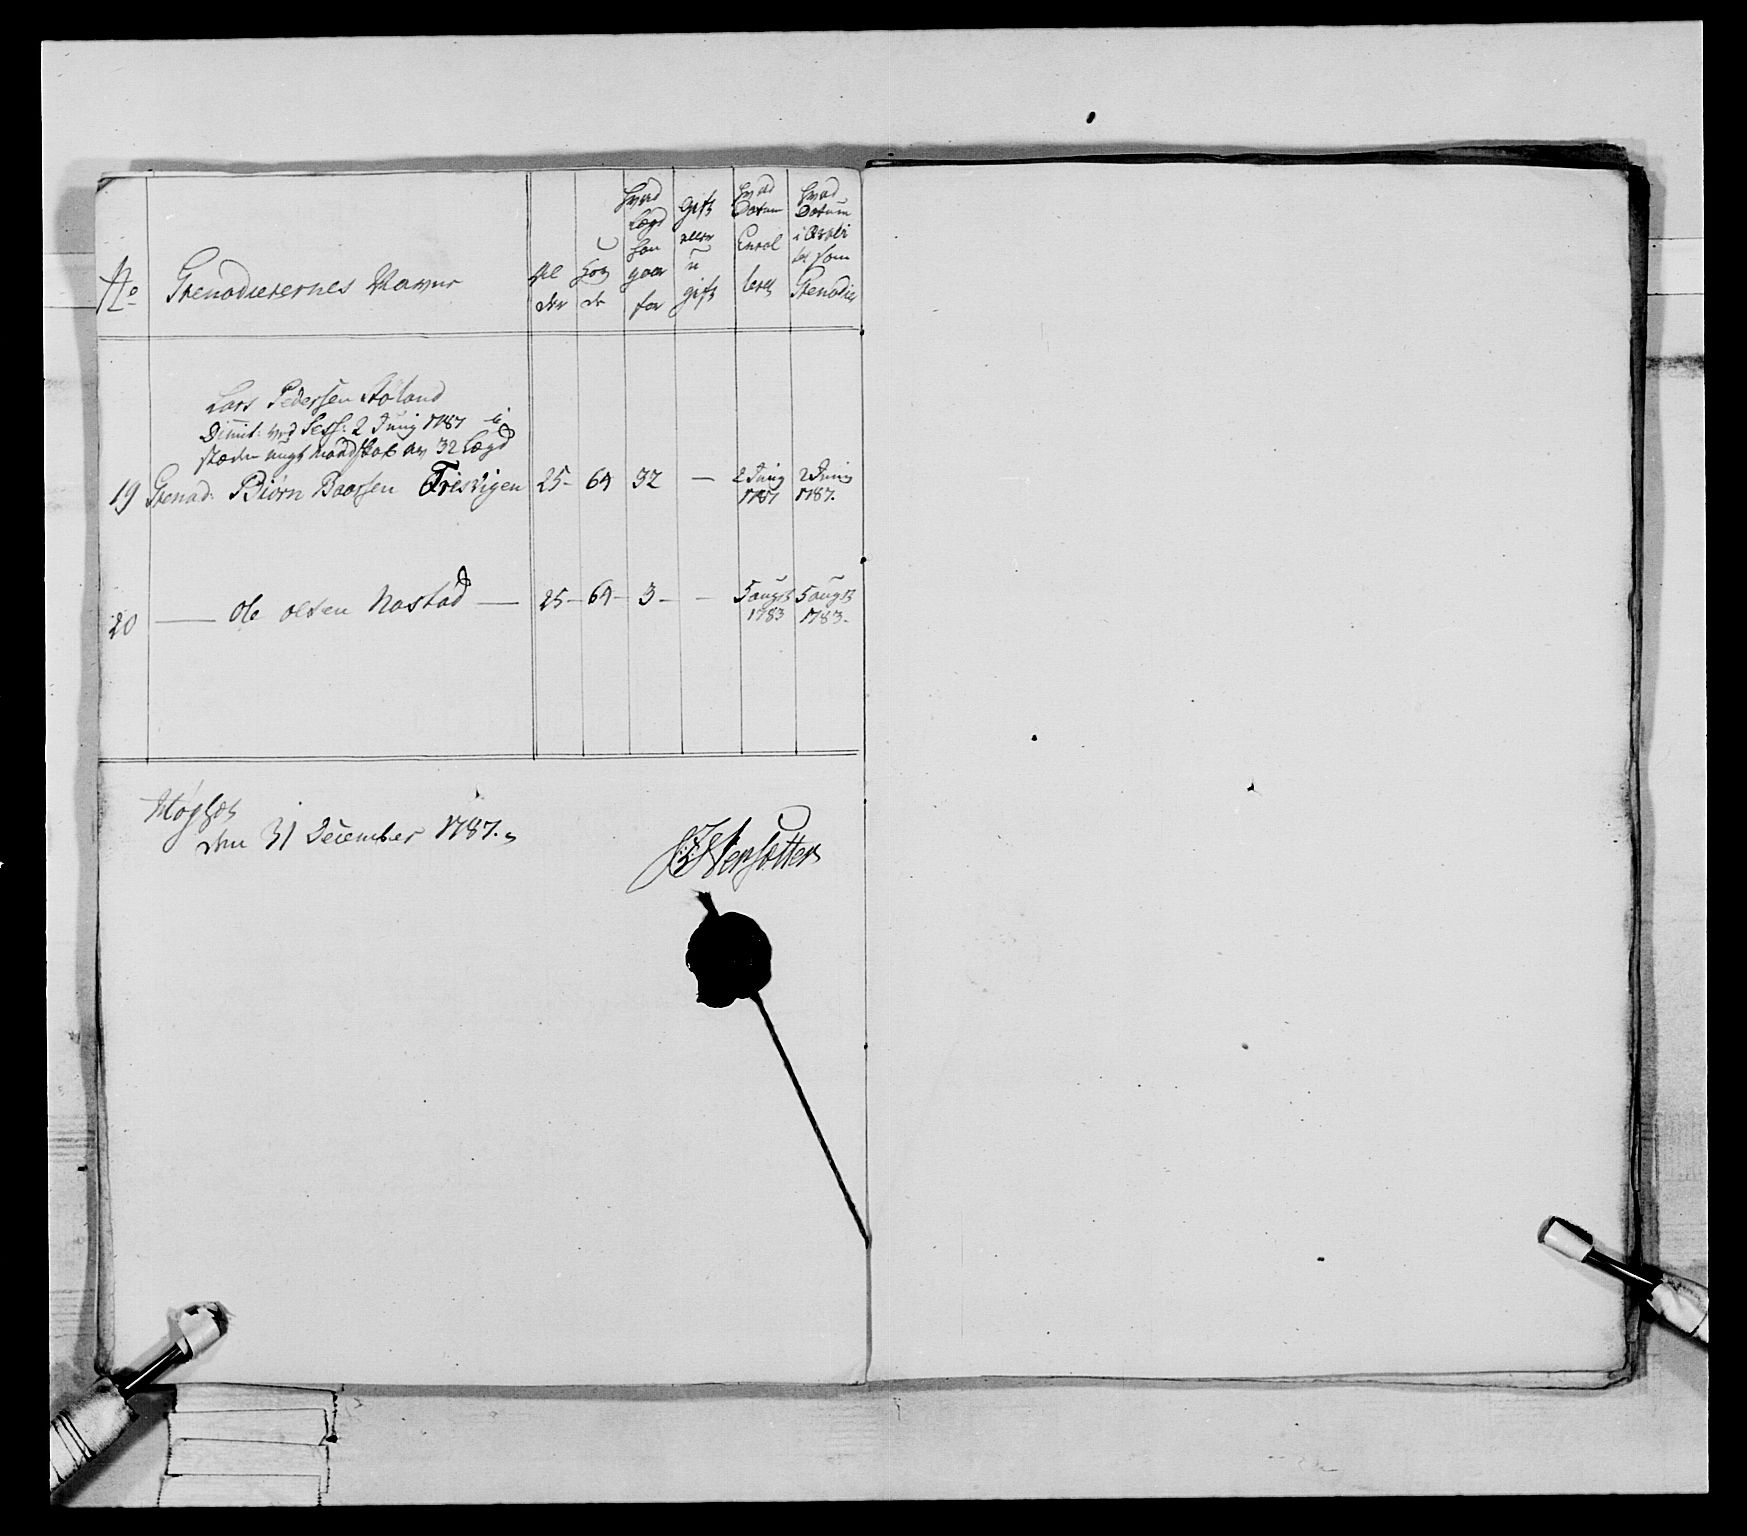 No
Grenadierernes Navne
Al
der
Høy
de
Hvad
Lægd
han
gaar
for
Gift
eller
u
gift
Hvad
Datum
Enrol
leret
Hvad
Datum
som
Grenadier
Lars Pedersen
Dimit: ved Sess: 2 Junij 1787 i
stæden nyt Mandskab av 32 Lægd
19 Grenad: Biørn Baarsen Trisvigen 25- 64 32 — 2 Junij 1787 2 Junij 1787.
20 —— Ole Olsen Nastad — 25- 64- 3- — 5 augst 1783 5 augst 1783.
den 31 December 1787.